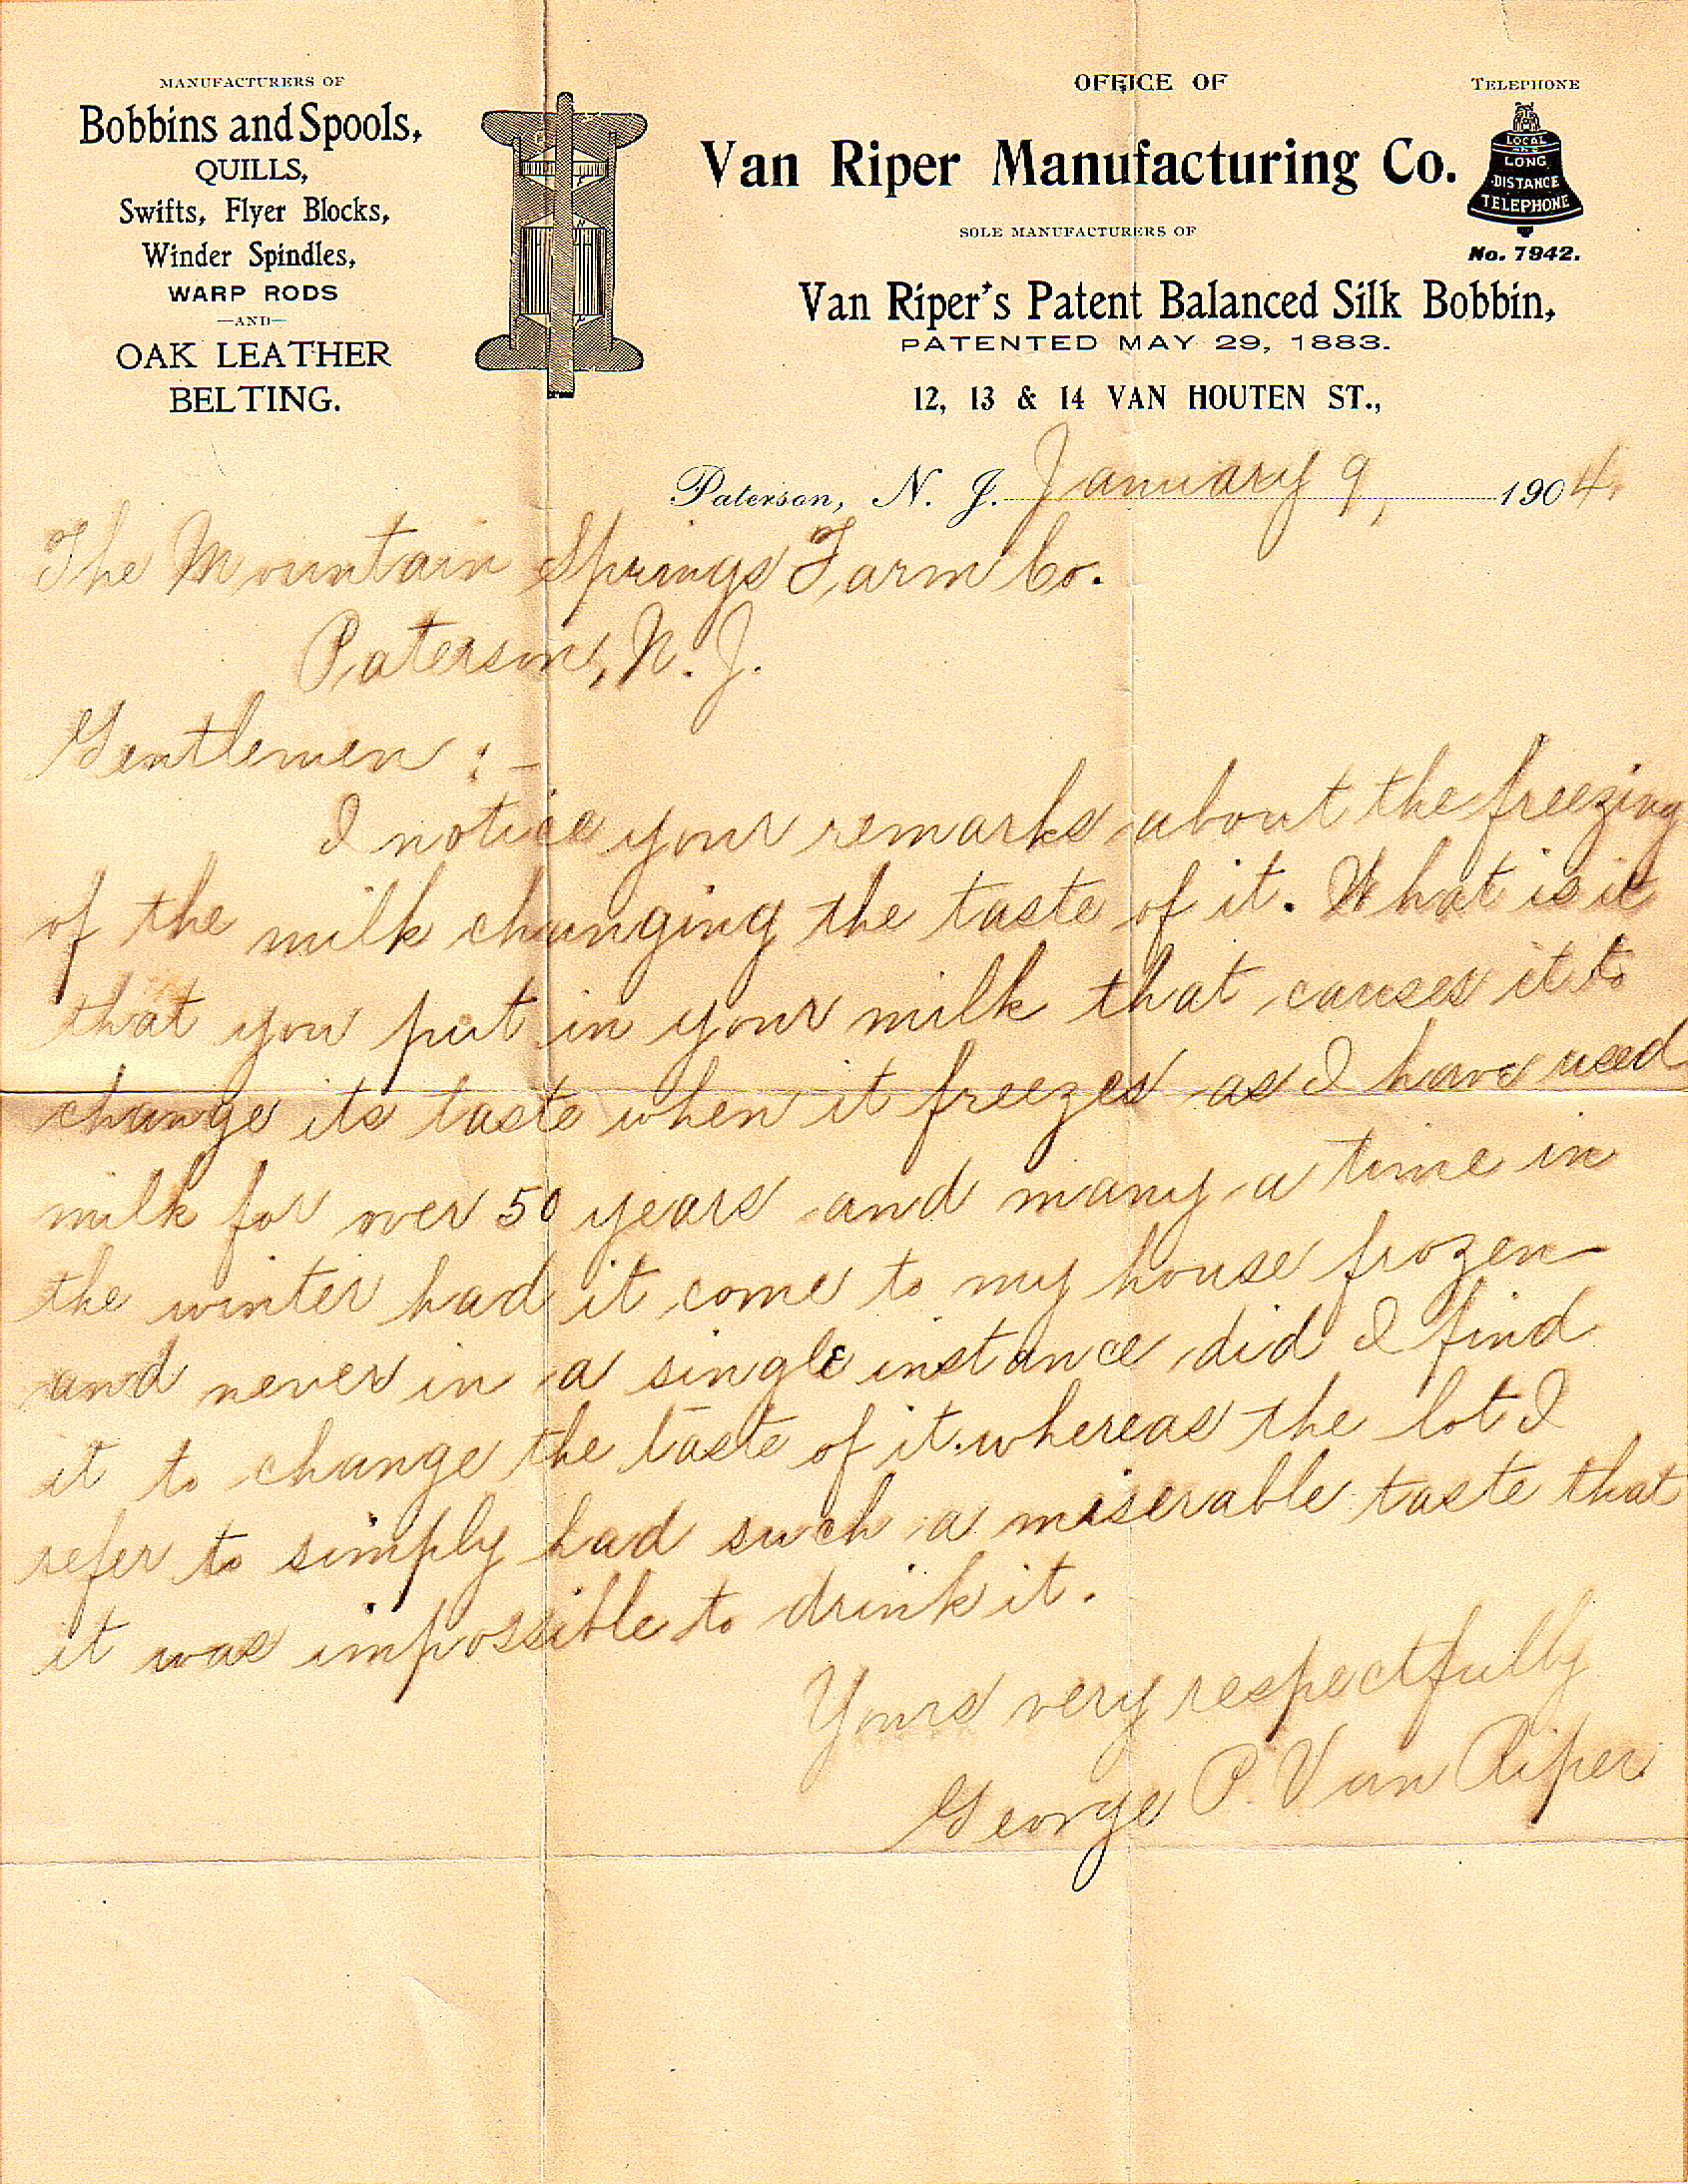 MANUFACTURERS OF
Bobbins and Spools,
QUILLS,
Swifts, Flyer Blocks,
Winder Spindles,
WARP RODS
—AND—
OAK LEATHER
BELTING.
OFFICE OF
Van Riper Manufacturing Co.
SOLE MANUFACTURERS OF
Van Riper's Patent Balanced Silk Bobbin,
PATENTED MAY 29, 1883.
12, 13 & 14 VAN HOUTEN ST.,
TELEPHONE
LOCAL
AND
LONG
DISTANCE
TELEPHONE
No. 7942.
Paterson, N. J. January 9, 1904.
The Mountain Springs Farm Co.
Paterson, N. J.
Gentlemen :-
I notice your remarks about the freezing
of the milk changing the taste of it. What is it
that you put in your milk that causes it to
change its taste when it freezes as I have used
milk for over 50 years and many a time in
the winter had it come to my house frozen
and never in a single instance did I find
it to change the taste of it. whereas the lot I
refer to simply had such a miserable taste that
it was impossible to drink it.
Yours very respectfully
George P. Van Riper